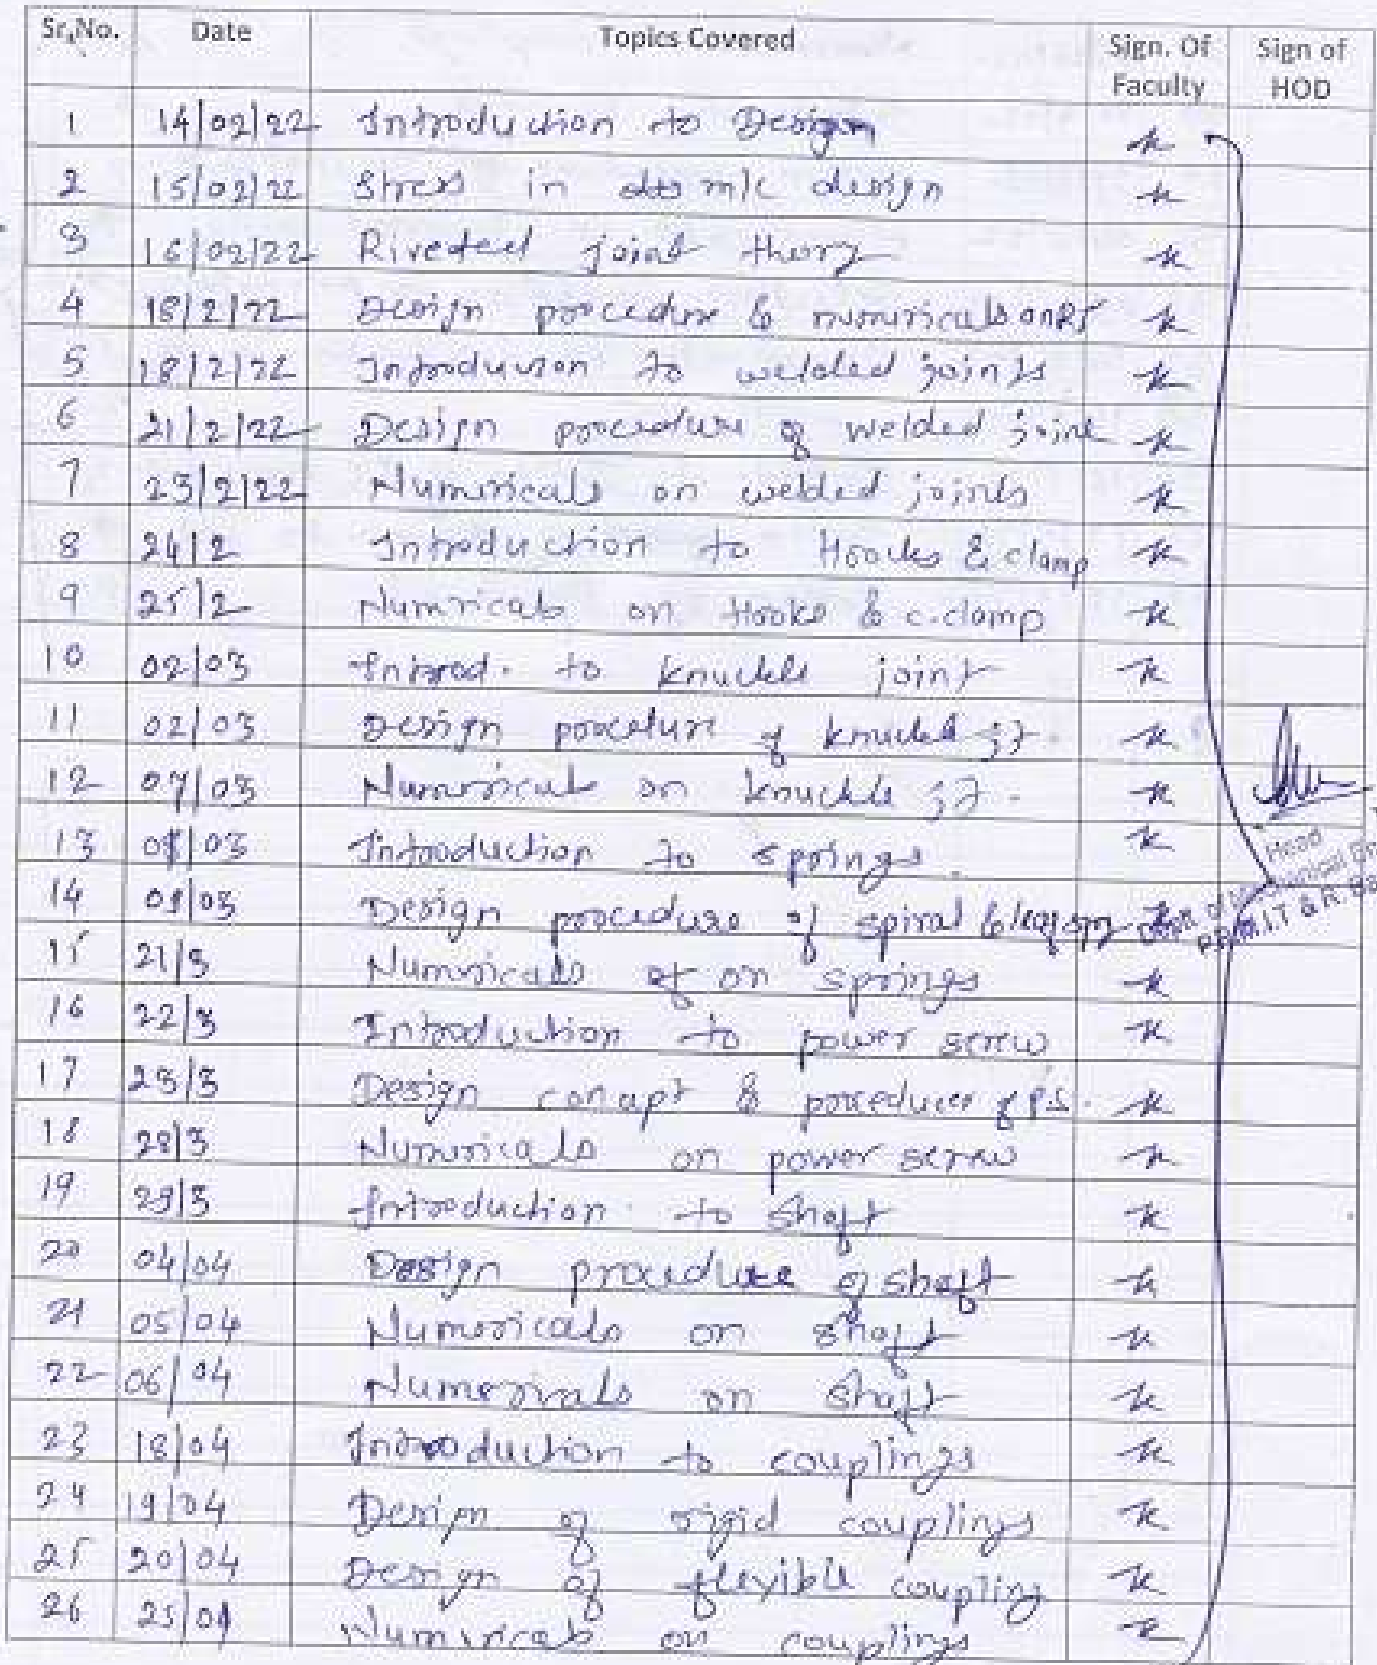 Sr.No. Date Topics Covered Sign. Of Faculty Sign of HOD
1 14/02/22 Introduction to Design
2 15/02/22 Stress in m/c design
3 16/02/22 Riveted joint thory
4 18/2/22 Design procedure & numericals on RJ
5 18/2/22 Introduction to welded joints
6 21/2/22 Design procedure of welded joint
7 23/2/22 Numericals on welded joints
8 24/2 Introduction to Hooks & clamp
9 25/2 Numricals on Hooks & c-clamp
10 02/03 Introd. to knuckle joint
11 02/03 Design procedure of knuckle jt.
12 07/03 Numericals on knuckle jt.
13 08/03 Introduction to springs.
14 09/03 Design procedure of spiral & leaf
15 21/3 Numericals on springs
16 22/3 Introduction to power screw
17 23/3 Design concept & procedure of P.S.
18 28/3 Numericals on power screw
19 29/3 Introduction to shaft
20 04/04 Design procedure of shaft
21 05/04 Numericals on shaft
22 06/04 Numericals on shaft
23 18/04 Introduction to couplings
24 19/04 Design of rigid couplings
25 20/04 Design of flexible coupling
26 25/04 Numericals on couplings
Head